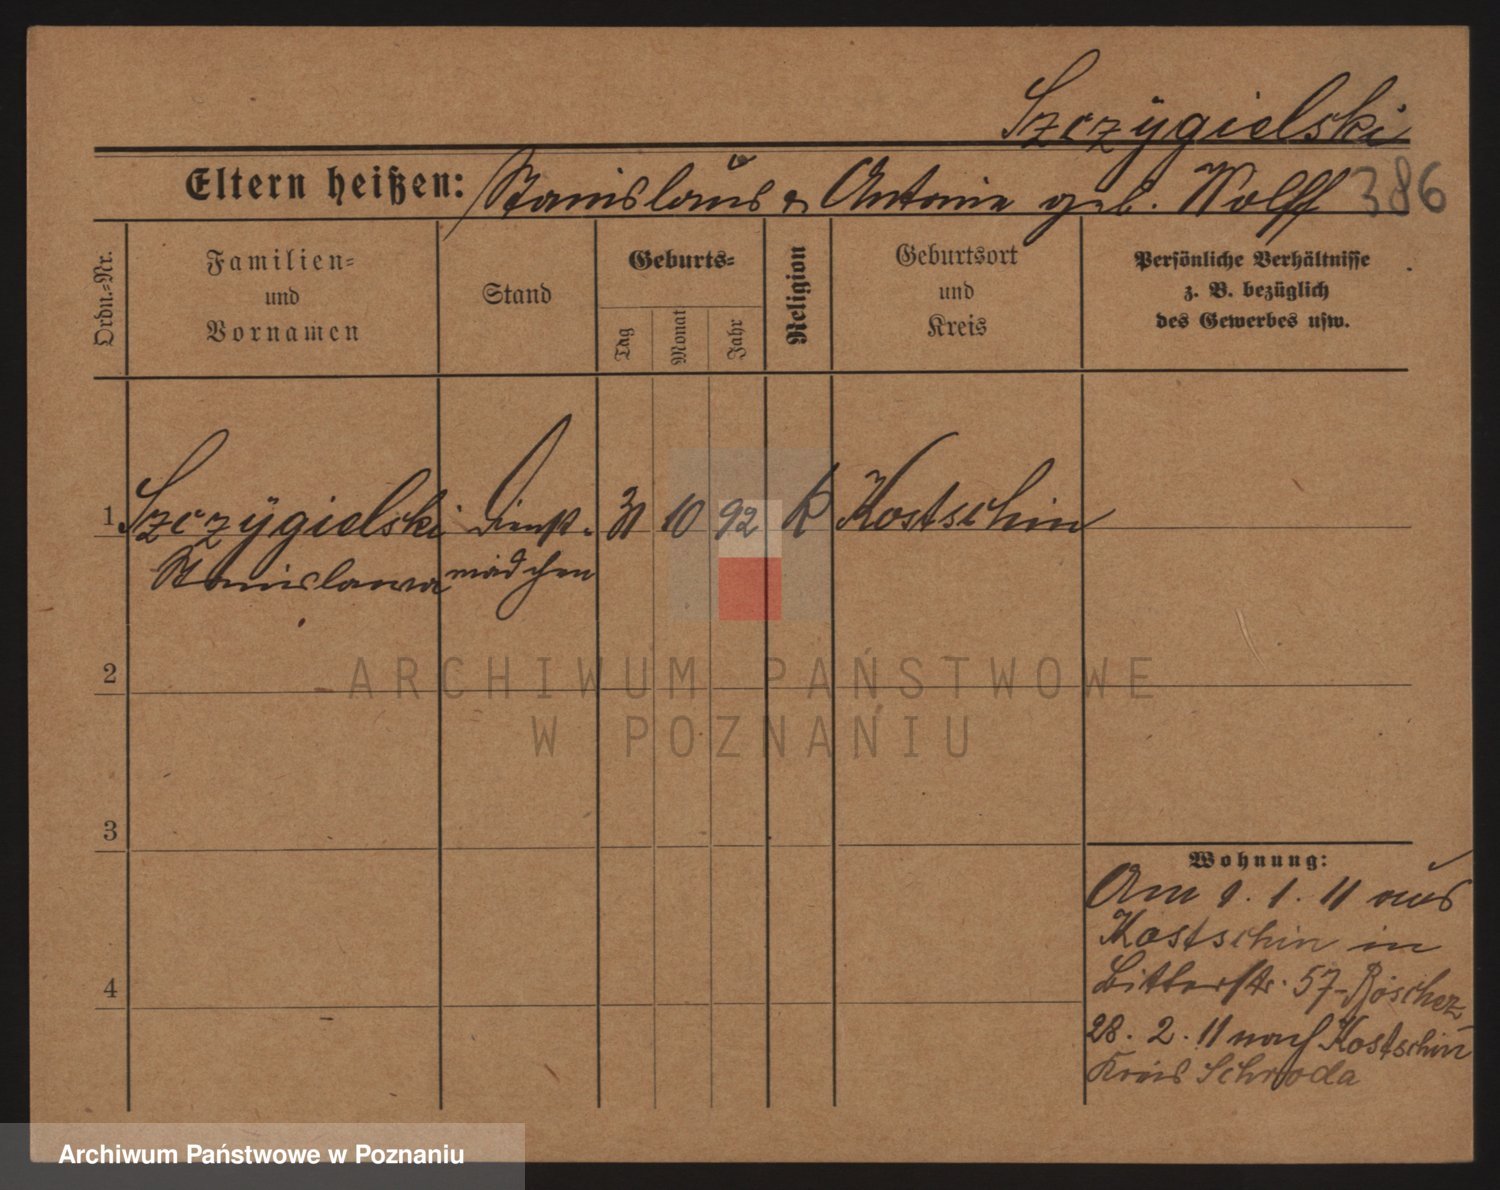 Szczÿgielski
Eltern heißen: Stanislaus & Antonie geb. Wolff 386
Ordn.-Nr.
Familien-
und
Vornamen
Stand
Geburts-
Tag
Monat
Jahr
Religion
Geburtsort
und
Kreis
Persönliche Verhältnisse
z. B. bezüglich
des Gewerbes usw.
1 Szczÿgielski Dienst- 31 10 92 k Kostschin
Stanislawa mädchen
2
3
4
Wohnung:
Am 9. 1. 11 aus
Kostschin in
Bitterstr. 57-
28. 2. 11 nach Kostschin
Kreis Schroda
ARCHIWUM PAŃSTWOWE
W POZNANIU
Archiwum Państwowe w Poznaniu